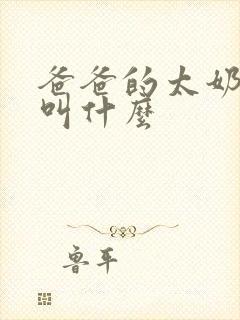 爸爸的太奶
叫什麼
鲁平